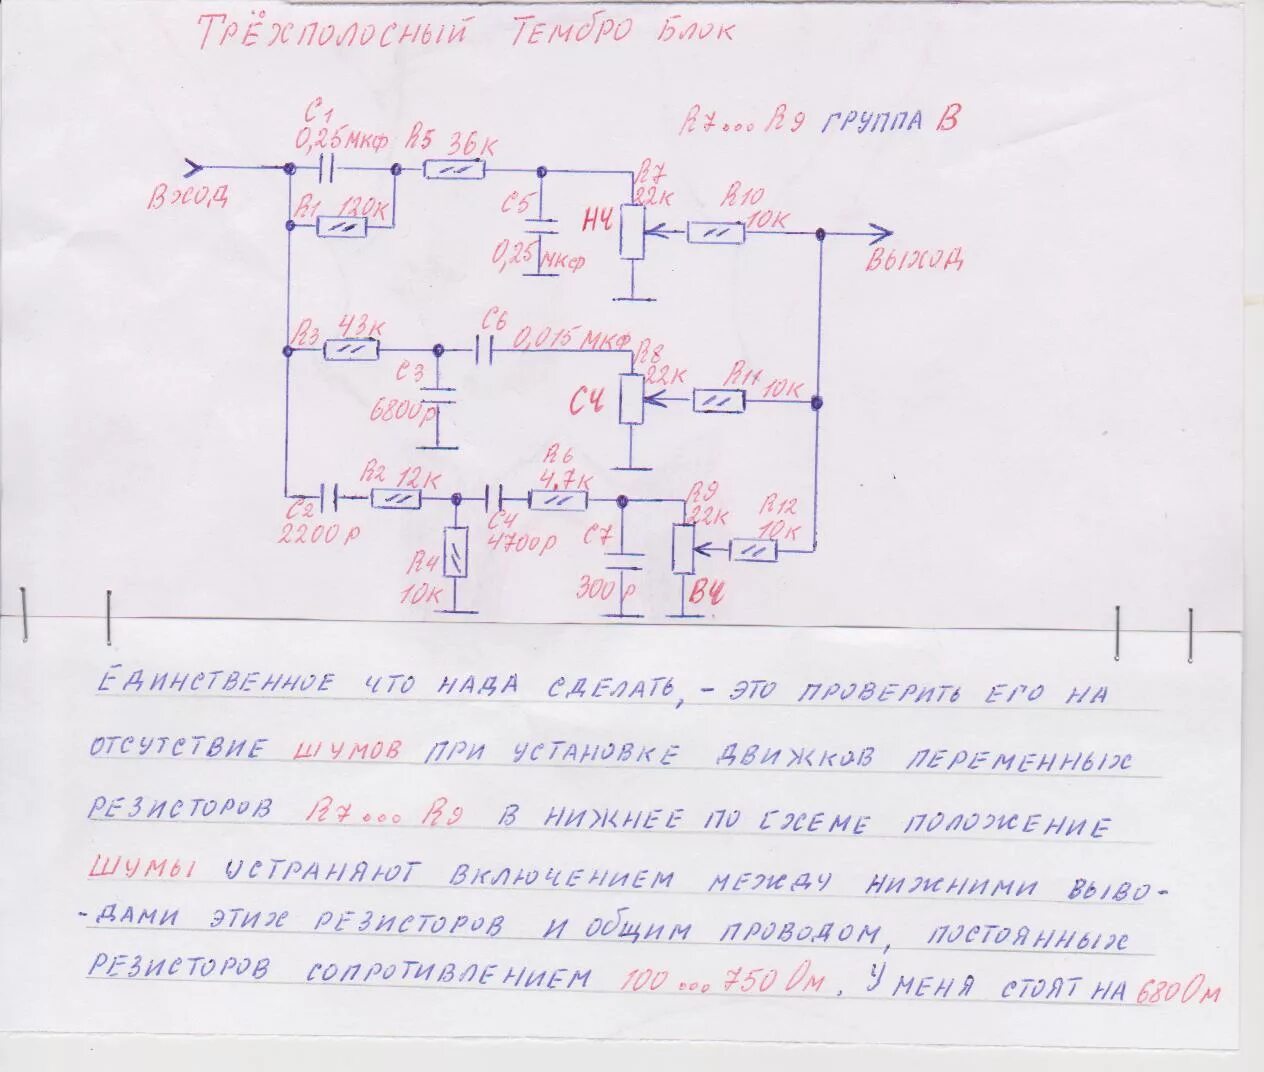 Трёхполосный Тембро Блок
R7...R9 группа В
C1
0,25мкф
R5 36к
Вход
R1 120к
C5
0,25мкф
R7
22к
НЧ
R10
10к
Выход
R3 43к
C6 0,015 мкф
C3
6800р
R8
22к
СЧ
R11 10к
C2
2200р
R2 12к
R4
10к
C4
4700р
R6
4,7к
C7
300р
R9
22к
ВЧ
R12
10к
Единственное что нада сделать, - это проверить его на
отсутствие шумов при установке движков переменных
резисторов R7...R9 в нижнее по схеме положение
шумы устраняют включением между нижними выво-
-дами этих резисторов и общим проводом, постоянных
резисторов сопротивлением 100...750 Ом. У меня стоят на 680 Ом